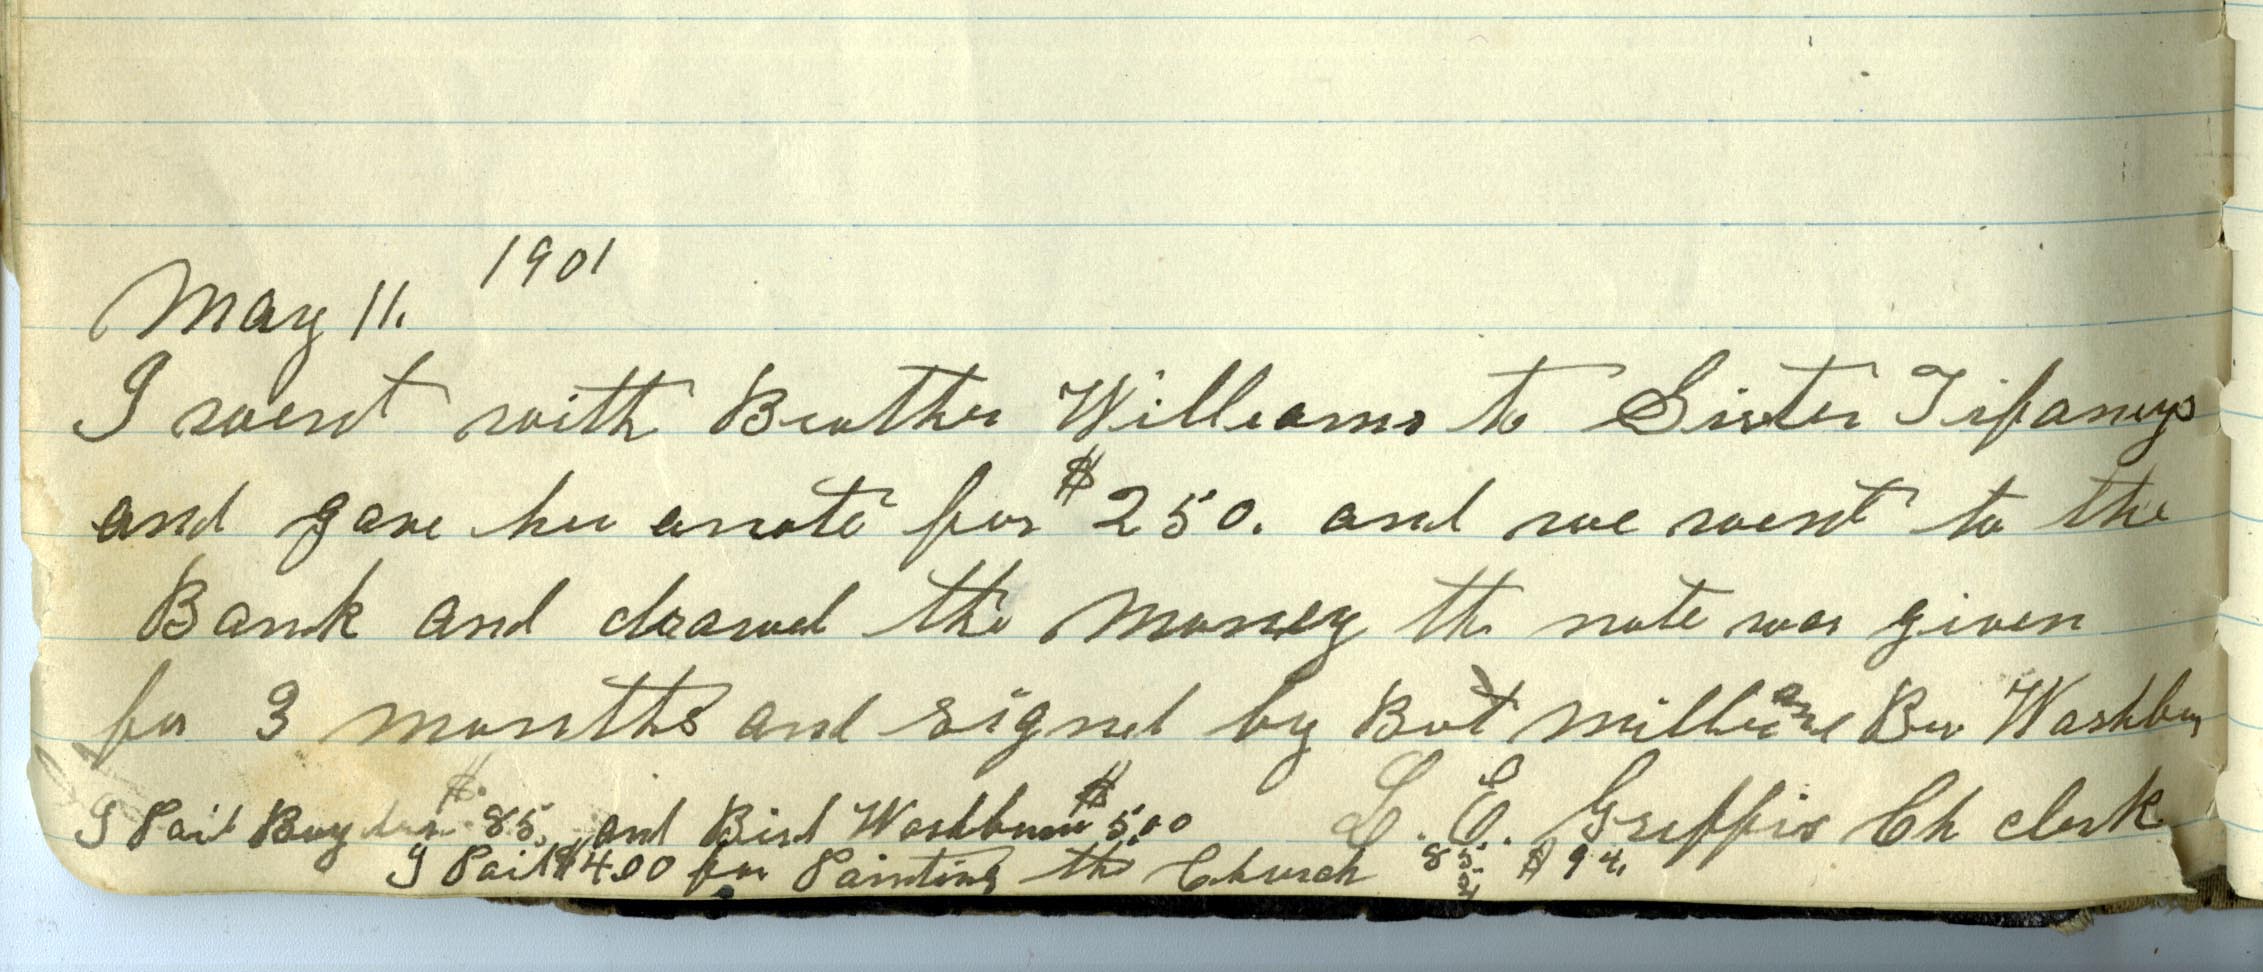 May 11. 1901
I went with Brother Williams to Sister Tifaneys
and gave her anote for $250. and we went to the
Bank and drawed the money the note was given
for 3 months and signed by Bot Millier and Bro Washburn
I Paid $85. and Bird Washburn $5.00 L. E. Griffis Ch clerk
I Paid $4.00 for Painting the Church 85. $94.